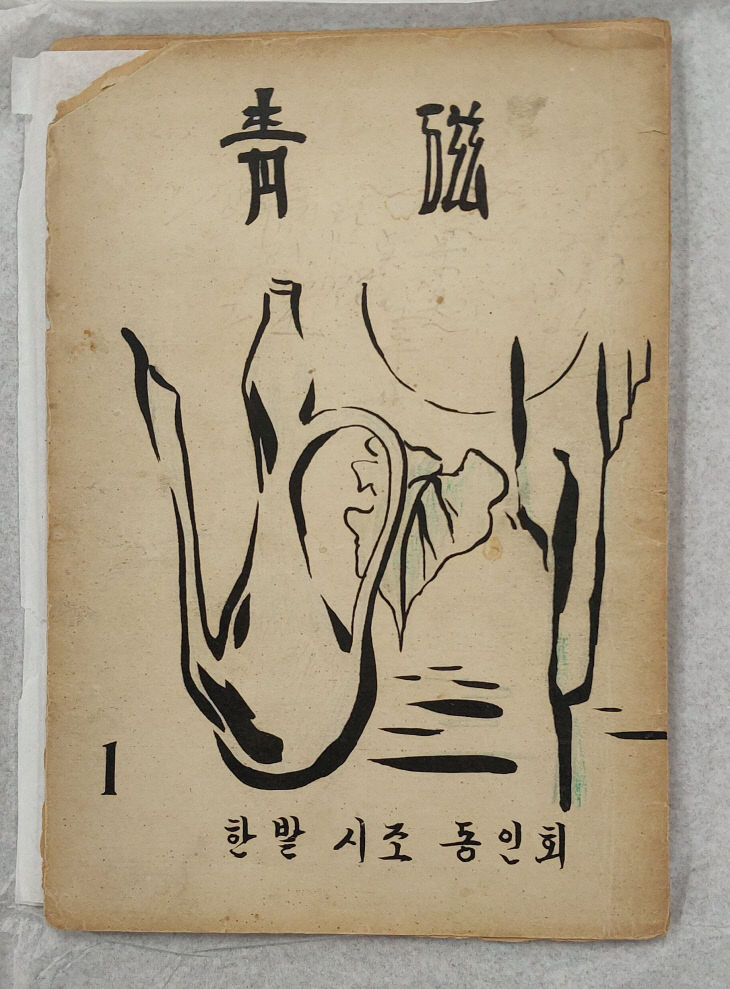 青磁
1
한발 시조 동인회